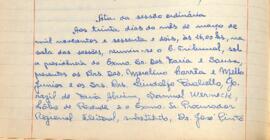 Ata da sessão ordinária
Aos trinta dias do mês de março de
mil novecentos e sessenta e seis, às 16,00 hs, na
sala das sessões, reuniu-se o E. Tribunal, sob
a presidência do Exmo Sr. Des. Faria e Sousa,
presentes os Srs. Drs. Marcelino Barrita e Mello
Junior e os Srs. Drs. Lindolfo Paoliello,
de Maria, Dorival Werneck,
e o Exmo. Sr. Procurador
Regional Eleitoral, substituto, Dr. José Pinto